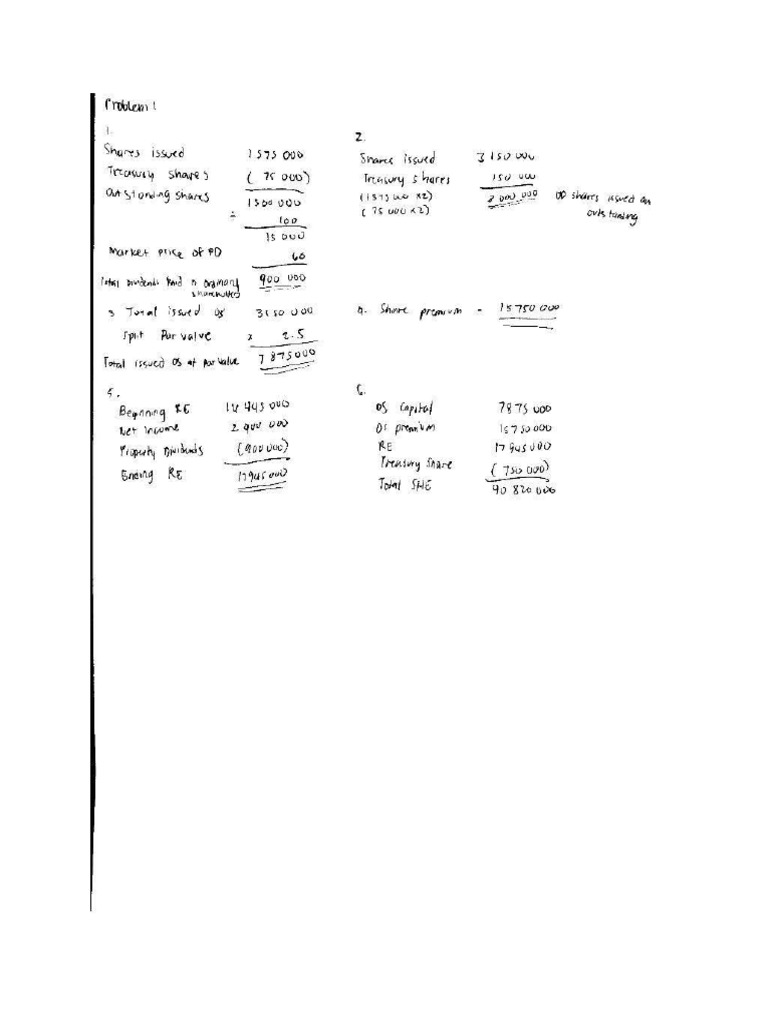 Problem 1
1.
Shares issued 1575 000
Treasury shares ( 75 000)
Outstanding shares 1500 000
÷ 100
15 000
Market price of PD 60
Total Dividends Paid n ordinary shareholders 900 000
2.
Shares issued 3150 000
Treasury shares 150 000
(1575 000 x2)
( 75 000 x2)
OS shares issued an
outstanding
3 Total issued OS 3150 000
Split Par value x 2.5
Total issued OS at Par Value 7 875000
4. Share premium - 15750 000
5.
Beginning RE
Net income 2 400 000
Property Dividends (900 000)
Ending RE 17945 000
6.
OS Capital 7875 000
OS premium 15750 000
RE 17945 000
Treasury Share ( 750 000)
Total SHE 40 820 000